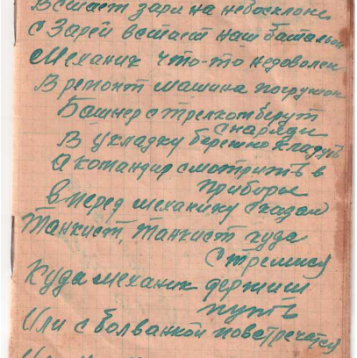 Встаёт заря на небосклоне
с Зарей встает наш батальон
Механик что-то недоволен
В ремонт машина погружон
Башнер стрелком берут
снаряды
В укладку бережно кладут
А командир смотрить в
приборы
вперед механику сказал
Танкист, танкист куда
стремися
Куда механик держиш
путь
Или с болванкой повстречаешся